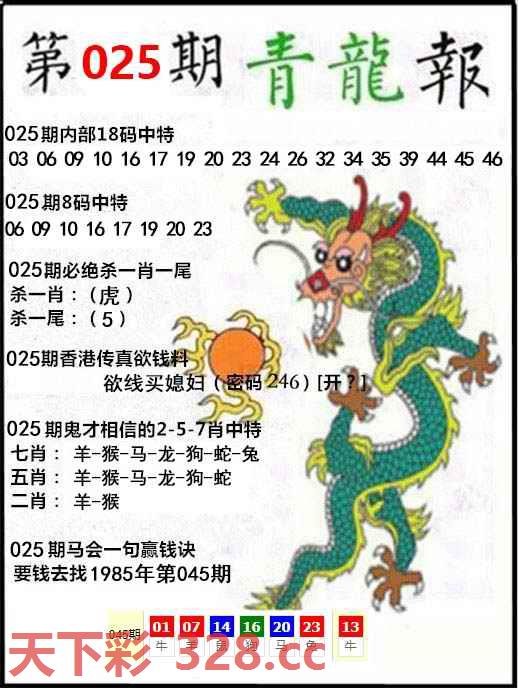 第025期青龍報
025期内部18码中特
03 06 09 10 16 17 19 20 23 24 26 32 34 35 39 44 45 46
025期8码中特
06 09 10 16 17 19 20 23
025期必绝杀一肖一尾
杀一肖：（虎）
杀一尾：（5）
025期香港传真欲钱料
欲线买媳妇（密码246）[开？]
025期鬼才相信的2-5-7肖中特
七肖：羊-猴-马-龙-狗-蛇-兔
五肖：羊-猴-马-龙-狗-蛇
二肖：羊-猴
025期马会一句赢钱诀
要钱去找1985年第045期
045期 01 07 14 16 20 23 13
牛 羊 鼠 狗 马 兔 牛
天下彩 328.cc